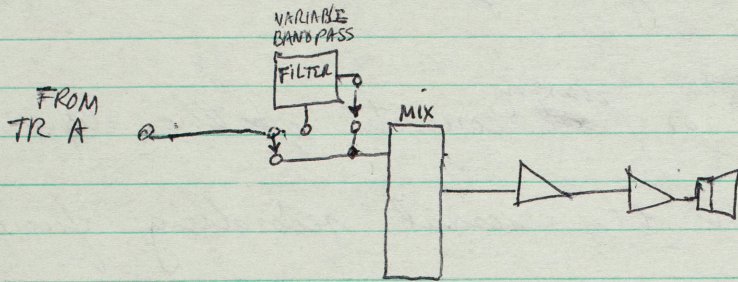 VARIABLE
BANDPASS
FILTER
FROM
TR A
MIX